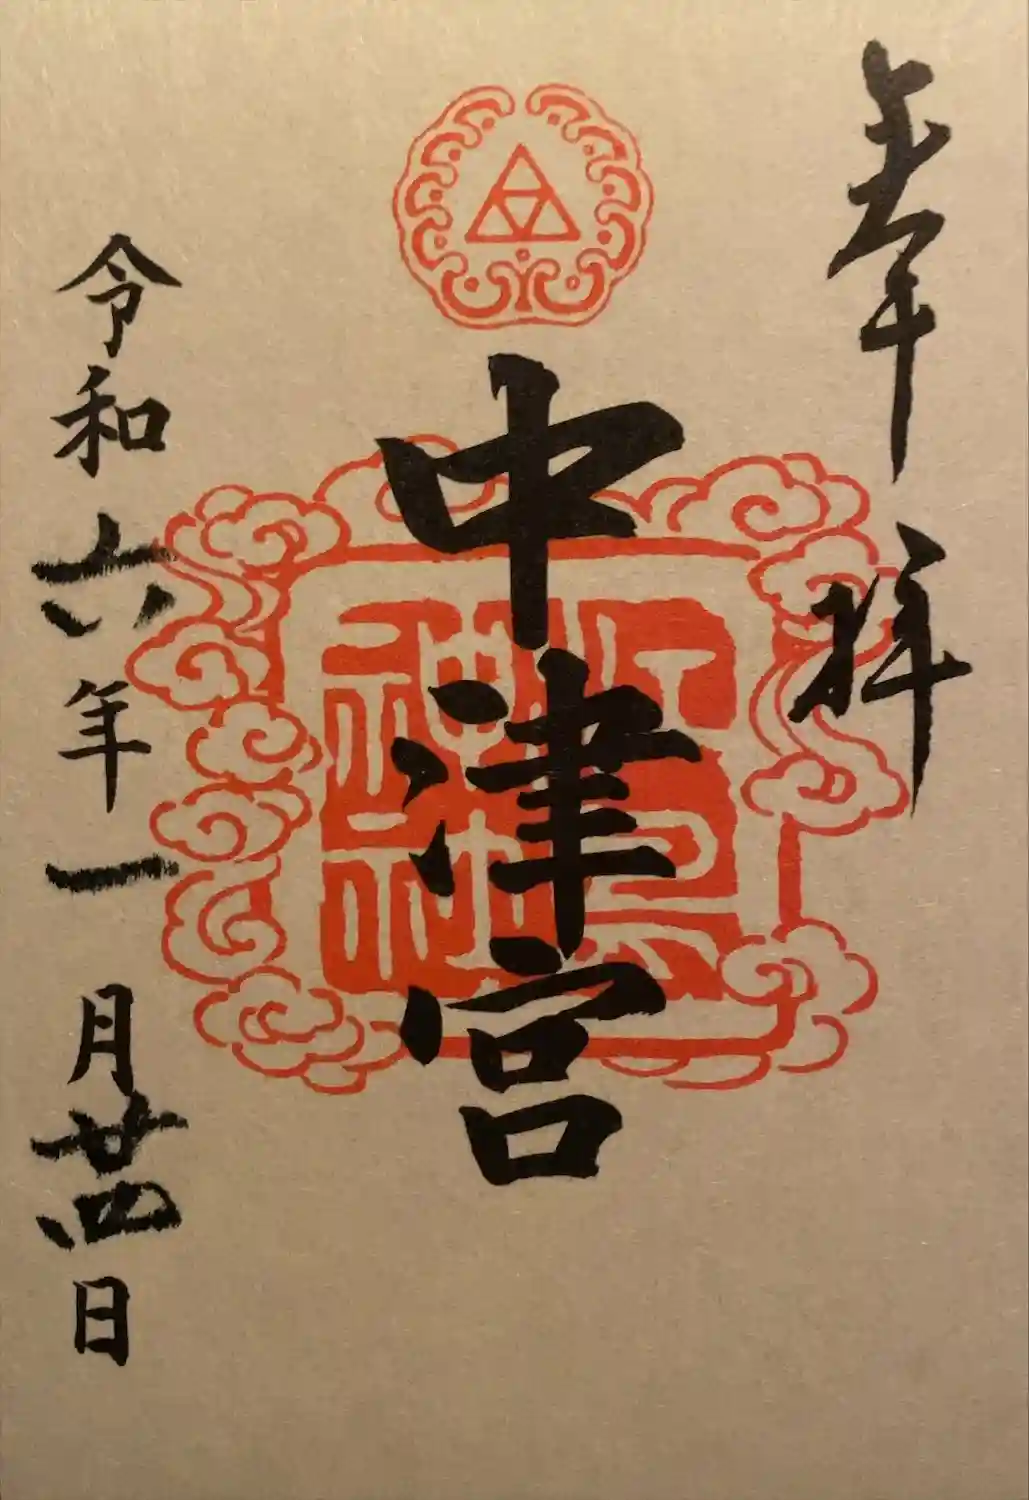 奉拝
中津宮
令和六年一月廿四日